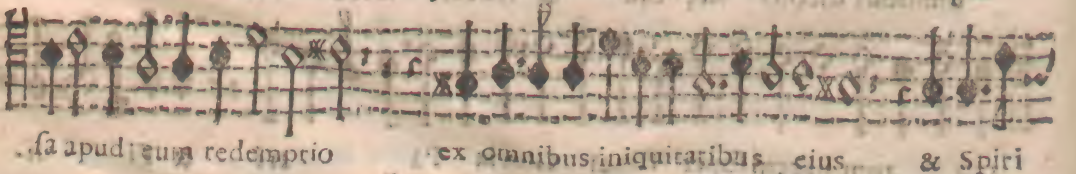 sa apud eum redemptio ex omnibus iniquitatibus eius & Spiri